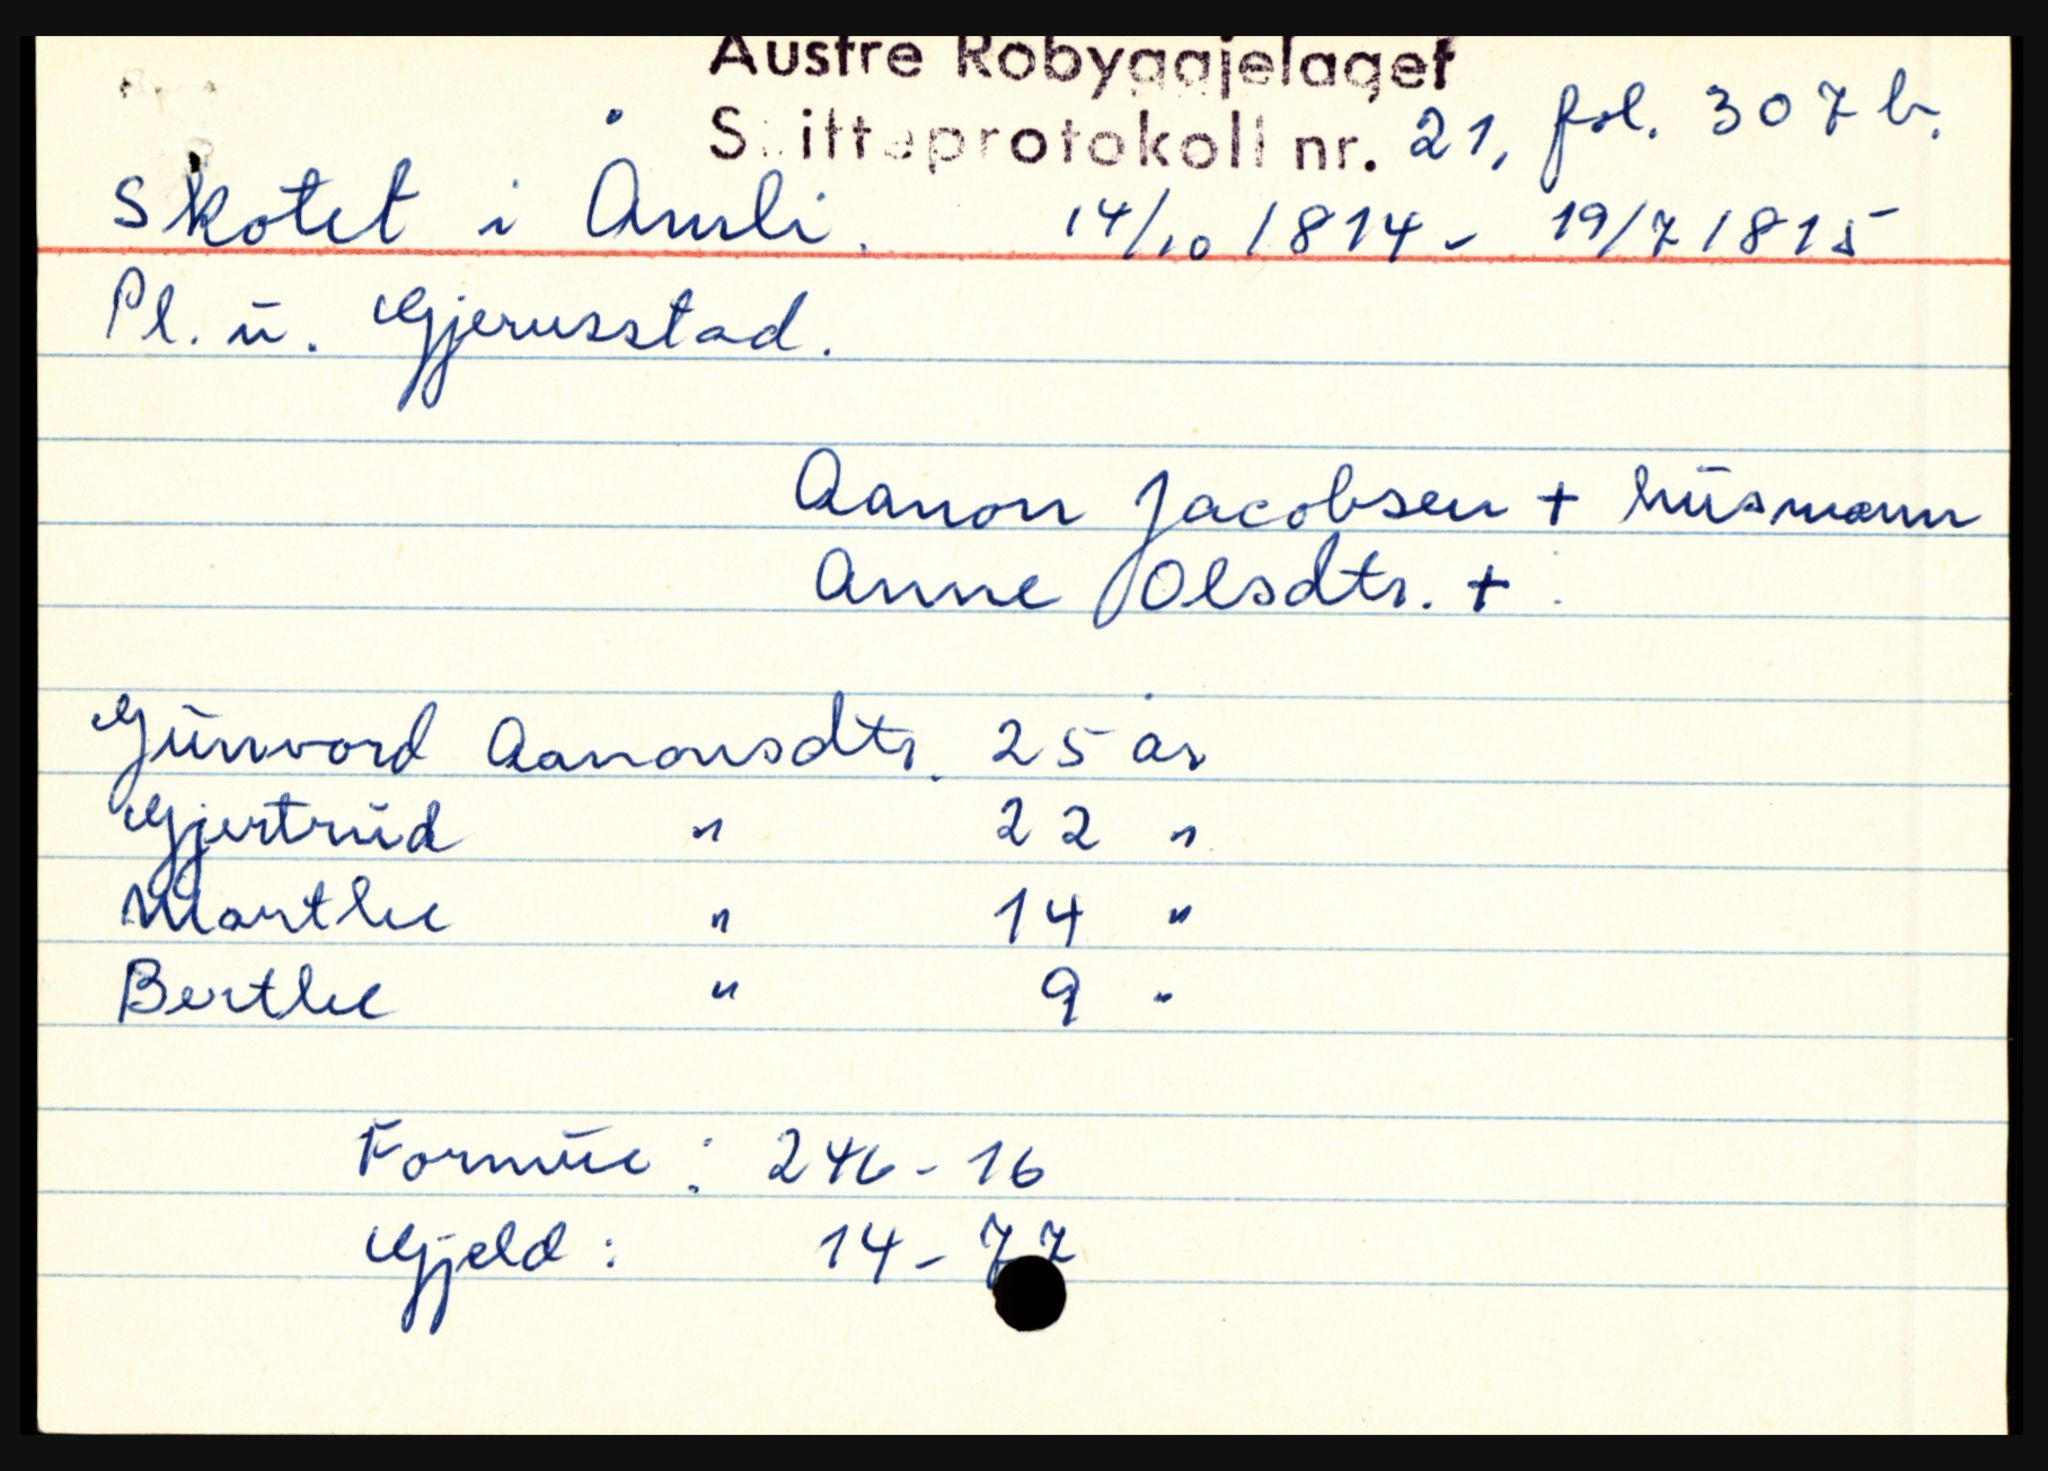 Austre Robyggjelaget
Skifteprotokoll nr. 21, fol. 307 b.
Skotet i Åmli. 14/10 1814 - 19/7 1815
Pl. u. Gjerusstad.
Aanon Jacobsen + husmann
Anne Olsdtr. +
Gunvord Aanonsdtr. 25 år
Gjertrud " 22 "
Marthe " 14 "
Berthe " 9 "
Formue: 246 - 16
Gjeld: 14 - 77